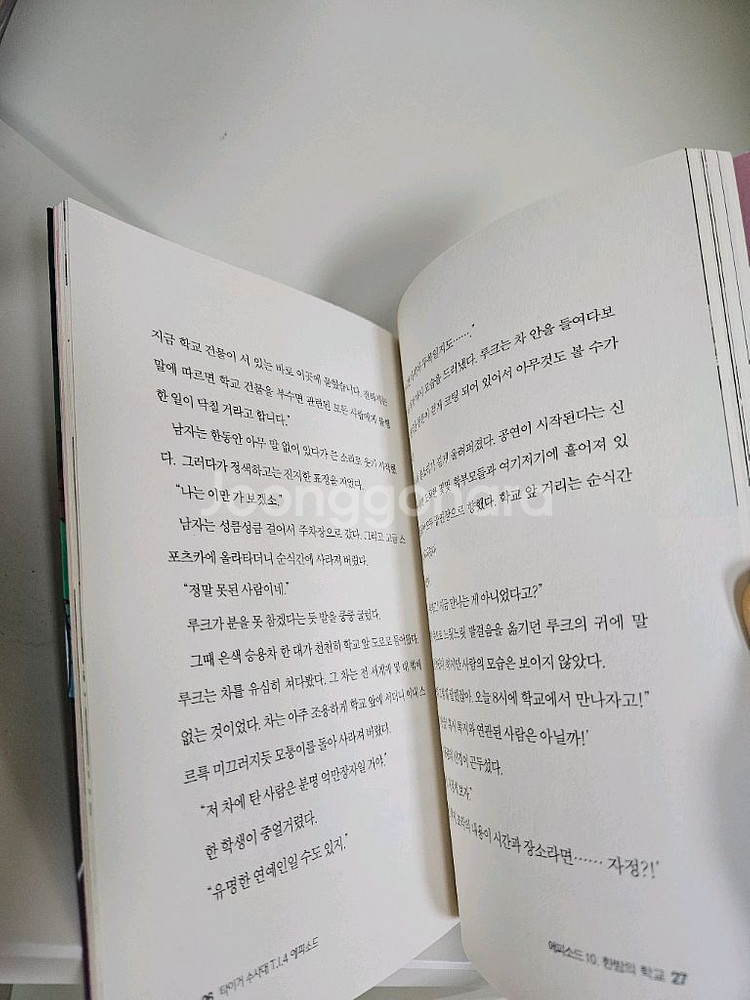 지금 학교 건물이 서 있는 바로 이곳에 묻혔습니다.
말에 따르면 학교 건물을 부수면 관련된 모든 사람에게
한 일이 닥칠 거라고 합니다."
남자는 한동안 아무 말 없이 있다가 큰 소리로 웃기
다. 그러다가 정색하고는 진지한 표정을 지었다.
"나는 이만 가 보겠소."
남자는 성큼성큼 걸어서 주차장으로 갔다. 그리고 고급 스
포츠카에 올라타더니 순식간에 사라져 버렸다.
"정말 못된 사람이네."
루크가 분을 못 참겠다는 듯 발을 쿵쿵 굴렀다.
그때 은색 승용차 한 대가 천천히 학교 앞 도로로 들어왔다.
루크는 차를 유심히 쳐다봤다. 그 차는 전 세계에 몇 대 밖에
없는 것이었다. 차는 아주 조용하게 학교 앞에 서더니 이내 스
르륵 미끄러지듯 모퉁이를 돌아 사라져 버렸다.
"저 차에 탄 사람은 분명 억만장자일 거야."
한 학생이 중얼거렸다.
"유명한 연예인일 수도 있지."
26 타이거 수사대 T.I.4 에피소드
모습을 드러냈다. 루크는 차 안을 들여다보
코팅 되어 있어서 아무것도 볼 수가
울려퍼졌다. 공연이 시작된다는 신
몇몇 학부모들과 여기저기에 흩어져 있
향했다. 학교 앞 거리는 순식간
지금 만나는 게 아니었다고?"
느릿느릿 발걸음을 옮기던 루크의 귀에 말
사람의 모습은 보이지 않았다.
오늘 8시에 학교에서 만나자고!"
혹시 쪽지와 연관된 사람은 아닐까!'
곤두섰다.
내용이 시간과 장소라면…… 자정?!'
에피소드 10. 한밤의 학교 27
Joonggonara